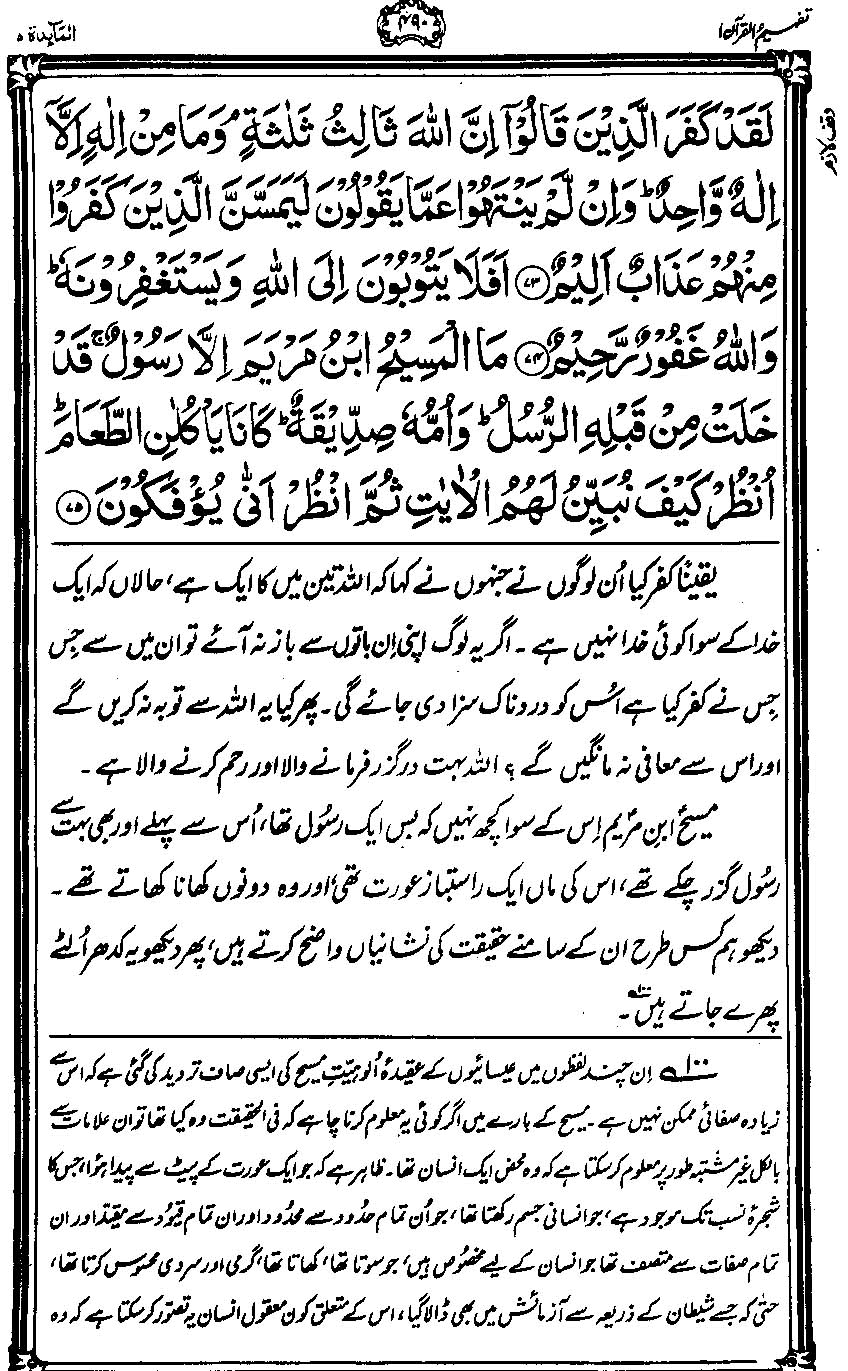 تفہیم القرآن ۱
۴۹۰
المآیدۃ ۵
وقف لازم
لَقَدْ كَفَرَ الَّذِيْنَ قَالُوْٓا اِنَّ اللّٰهَ ثَالِثُ ثَلٰثَةٍ ۘ وَمَا مِنْ اِلٰهٍ اِلَّآ
اِلٰهٌ وَّاحِدٌ ؕ وَاِنْ لَّمْ يَنْتَهُوْا عَمَّا يَقُوْلُوْنَ لَيَمَسَّنَّ الَّذِيْنَ كَفَرُوْا
مِنْهُمْ عَذَابٌ اَلِيْمٌ ﴿۷۳﴾ اَفَلَا يَتُوْبُوْنَ اِلَى اللّٰهِ وَيَسْتَغْفِرُوْنَهٗ ؕ
وَاللّٰهُ غَفُوْرٌ رَّحِيْمٌ ﴿۷۴﴾ مَا الْمَسِيْحُ ابْنُ مَرْيَمَ اِلَّا رَسُوْلٌ ۚ قَدْ
خَلَتْ مِنْ قَبْلِهِ الرُّسُلُ ؕ وَاُمُّهٗ صِدِّيْقَةٌ ؕ كَانَا يَاْكُلٰنِ الطَّعَامَ ؕ
اُنْظُرْ كَيْفَ نُبَيِّنُ لَهُمُ الْاٰيٰتِ ثُمَّ انْظُرْ اَنّٰى يُؤْفَكُوْنَ ﴿۷۵﴾
یقیناً کفر کیا اُن لوگوں نے جنہوں نے کہا کہ اللہ تین میں کا ایک ہے، حالاں کہ ایک
خدا کے سوا کوئی خدا نہیں ہے ۔ اگر یہ لوگ اپنی اِن باتوں سے باز نہ آئے تو ان میں سے جِس
جِس نے کفر کیا ہے اُس کو دردناک سزا دی جائے گی۔ پھر کیا یہ اللہ سے توبہ نہ کریں گے
اور اس سے معافی نہ مانگیں گے ؟ اللہ بہت درگزر فرمانے والا اور رحم کرنے والا ہے ۔
مسیحؑ ابنِ مریم اِس کے سوا کچھ نہیں کہ بس ایک رسُول تھا، اُس سے پہلے اور بھی بہت سے
رسُول گزر چکے تھے، اس کی ماں ایک راستباز عورت تھی، اور وہ دونوں کھانا کھاتے تھے ۔
دیکھو ہم کس طرح ان کے سامنے حقیقت کی نشانیاں واضح کرتے ہیں، پھر دیکھو یہ کدھر اُلٹے
پھرے جاتے ہیں۱۰۰؎ ۔
۱۰۰؎ اِن چند لفظوں میں عیسائیوں کے عقیدۂ اُلوہیّتِ مسیح کی ایسی صاف تردید کی گئی ہے کہ اس سے
زیادہ صفائی ممکن نہیں ہے ۔ مسیح کے بارے میں اگر کوئی یہ معلوم کرنا چاہے کہ فی الحقیقت وہ کیا تھا تو ان علامات سے
بالکل غیر مشتبہ طور پر معلوم کر سکتا ہے کہ وہ محض ایک انسان تھا۔ ظاہر ہے کہ جو ایک عورت کے پیٹ سے پیدا ہوا، جس کا
شجرۂ نسب تک موجود ہے، جو انسانی جسم رکھتا تھا، جو اُن تمام حدُود سے محدُود اور ان تمام قیُود سے مقیّد اور ان
تمام صفات سے متصف تھا جو انسان کے لیے مخصُوص ہیں، جو سوتا تھا، کھاتا تھا، گرمی اور سردی محسُوس کرتا تھا،
حتٰی کہ جسے شیطان کے ذریعہ سے آزمائش میں بھی ڈالا گیا، اس کے متعلق کون معقول انسان یہ تصوّر کر سکتا ہے کہ وہ